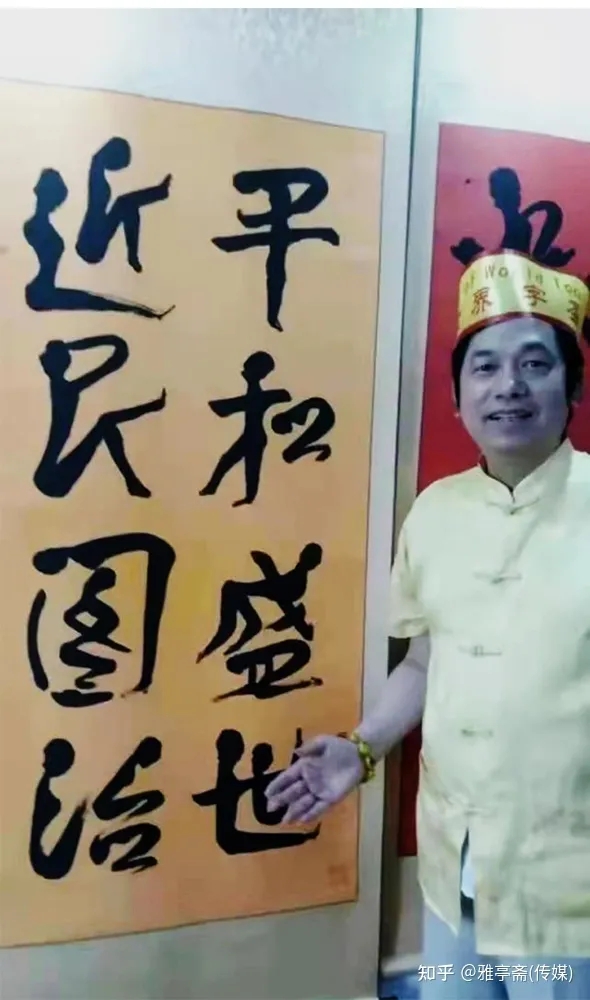 平和盛世
近民图治
of World
知乎 @雅亭斋(传媒)